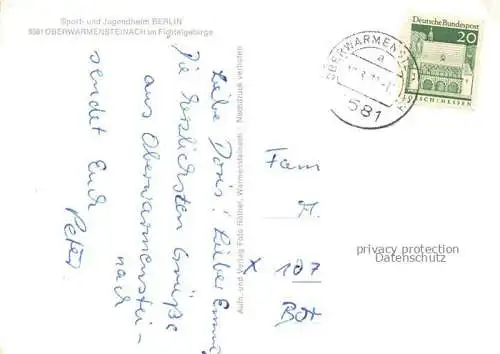 Sport- und Jugendheim BERLIN
8581 OBERWARMENSTEINACH im Fichtelgebirge
Deutsche Bundespost
20
LORSCH/HESSEN
OBERWARMENSTEINACH
a
581
Liebe Doris! Lieber
Die herzlichsten Grüße
aus Oberwarmenstei-
nach
sendet Euch
Peter
Aufn. und Verlag Foto Warmensteinach Nachdruck verboten
Fam
M.
x 107
privacy protection
Datenschutz